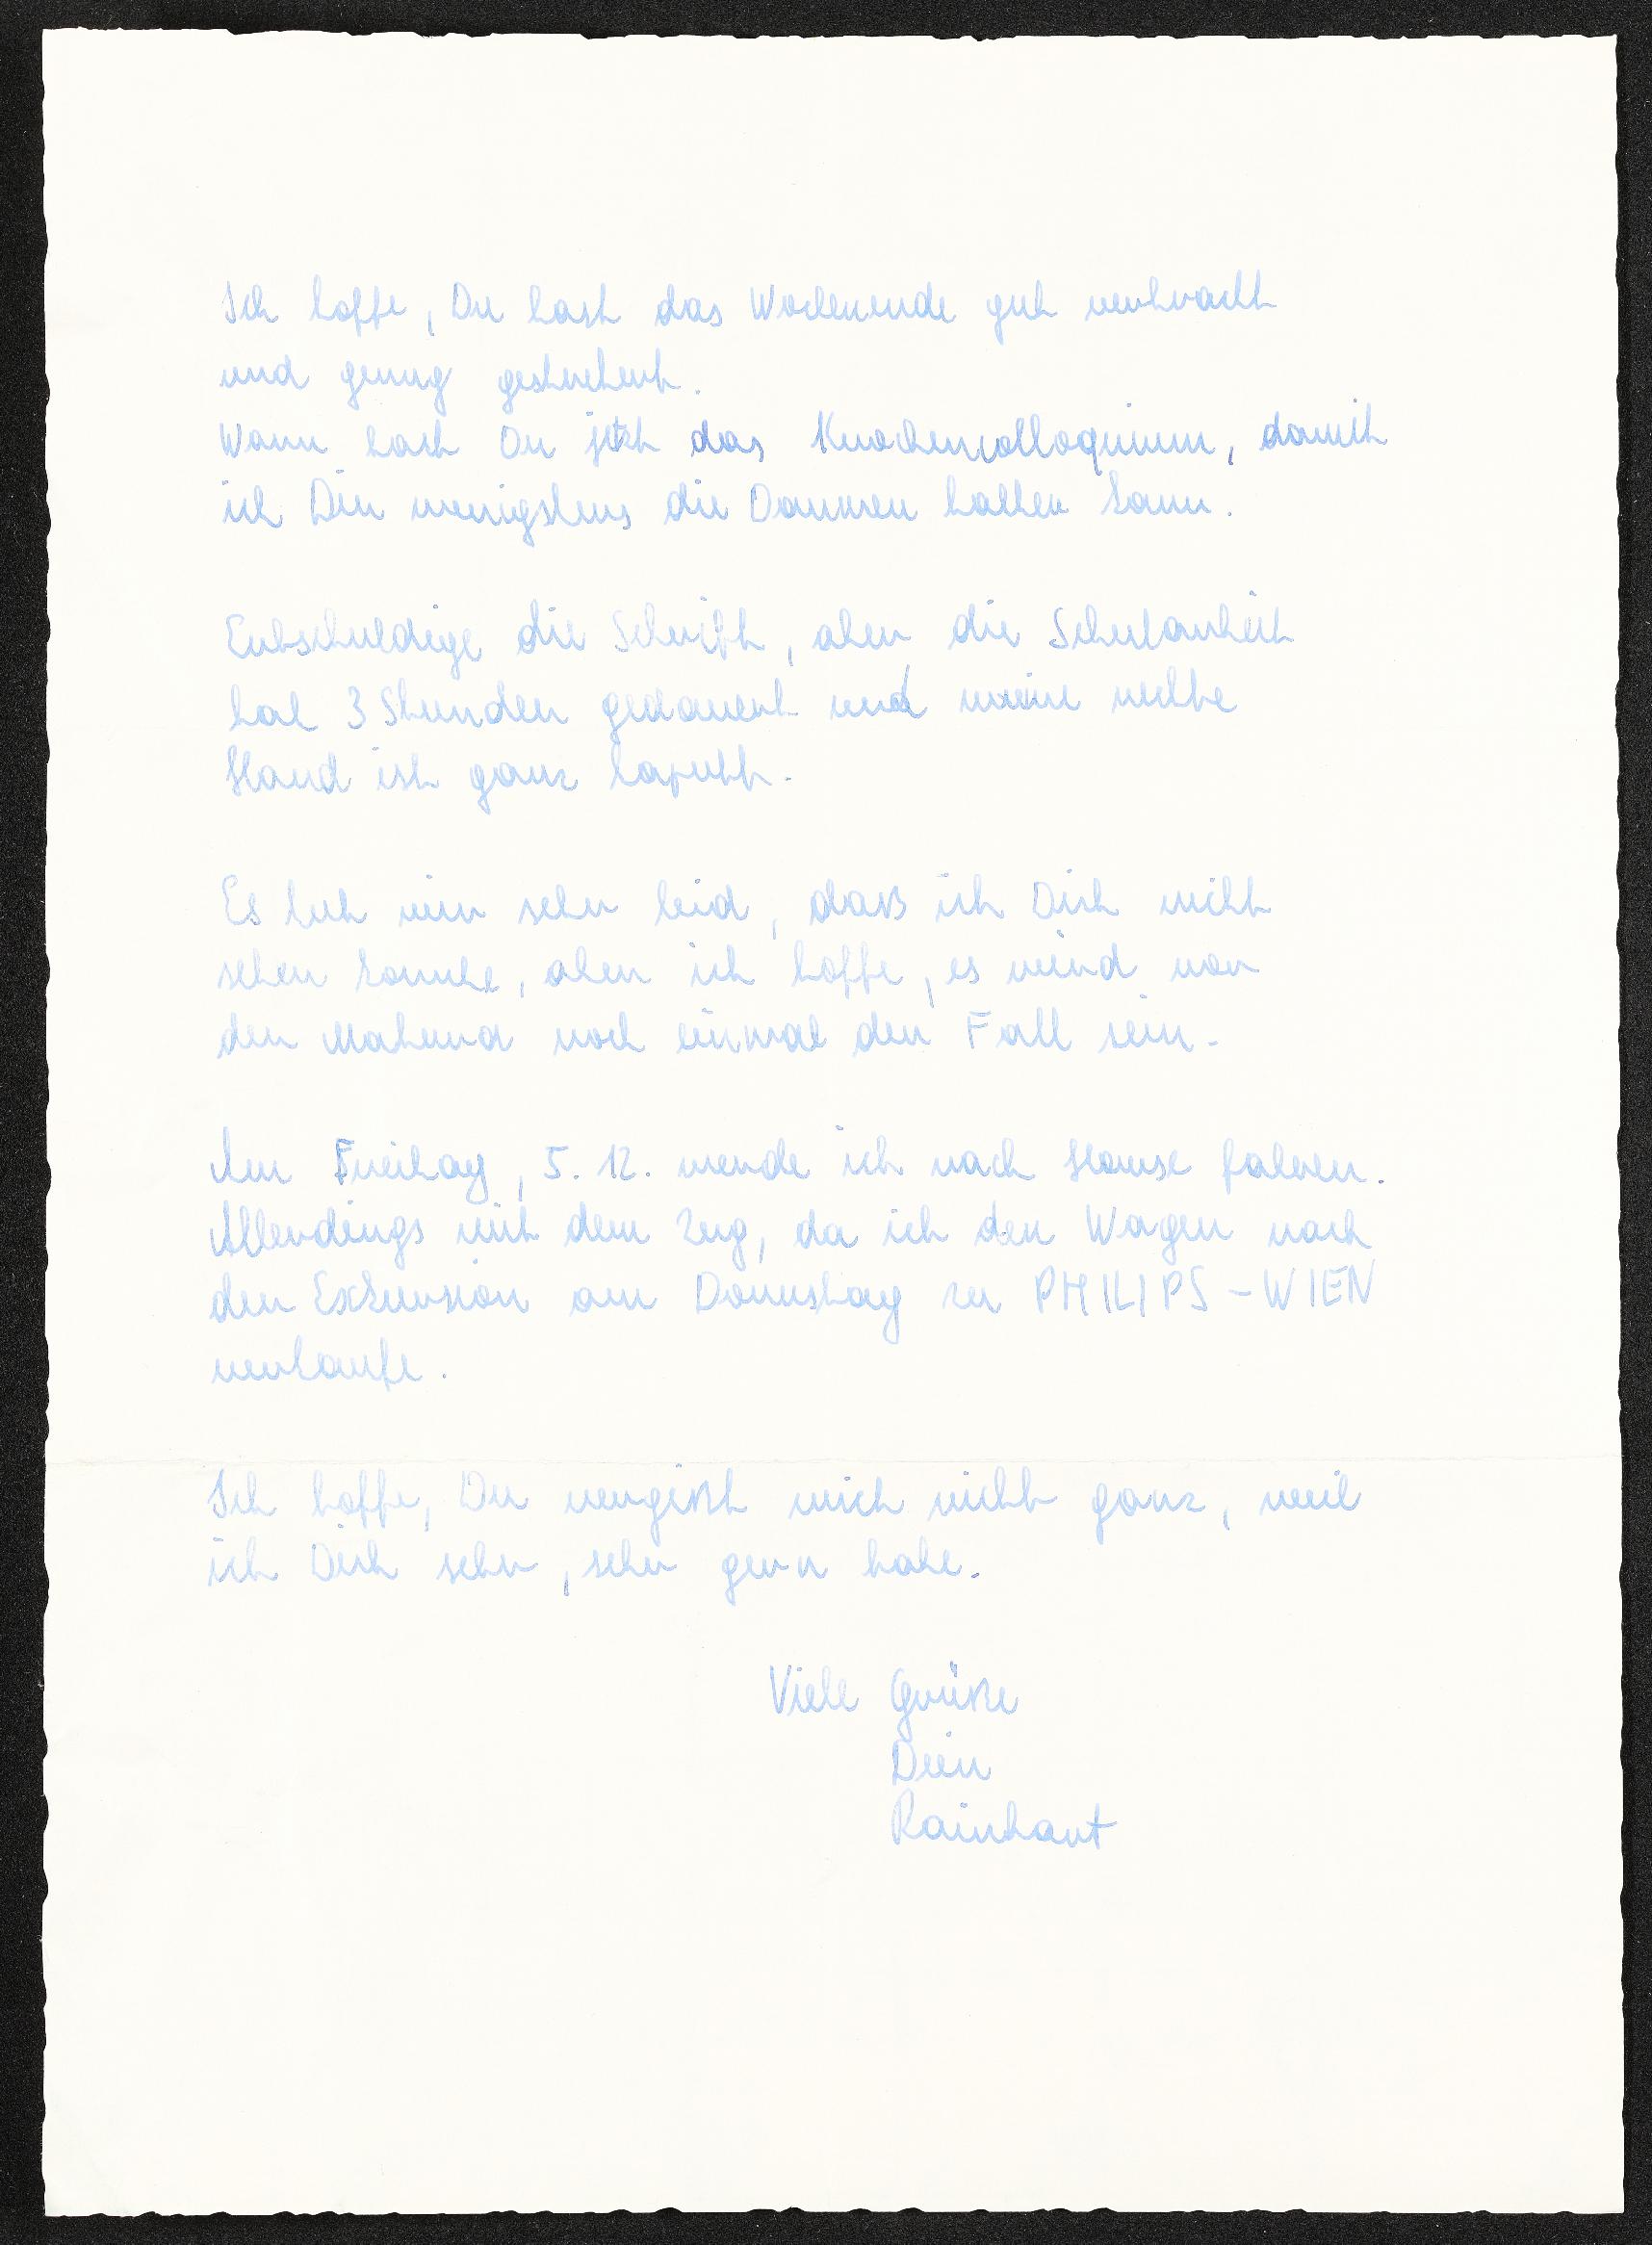 Ich hoffe, Du hast das Wochenende gut verbracht
und genug gestrebert.
Wann hast Du jetzt das Knochencolloquium, damit
ich Dir wenigstens die Daumen halten kann.
Entschuldige die Schrift, aber die Schularbeit
hat 3 Stunden gedauert und meine rechte
Hand ist ganz kaputt.
Es tut mir sehr leid, daß ich Dich nicht
sehen konnte, aber ich hoffe, es wird vor
der Matura noch einmal der Fall sein.
Am Freitag, 5. 12. werde ich nach Hause fahren.
Allerdings mit dem Zug, da ich den Wagen nach
der Exkursion am Donnstag zu PHILIPS-WIEN
verkaufe.
Ich hoffe, Du vergißt mich nicht ganz, weil
ich Dich sehr, sehr gern habe.
Viele Grüße
Dein
Rainhart